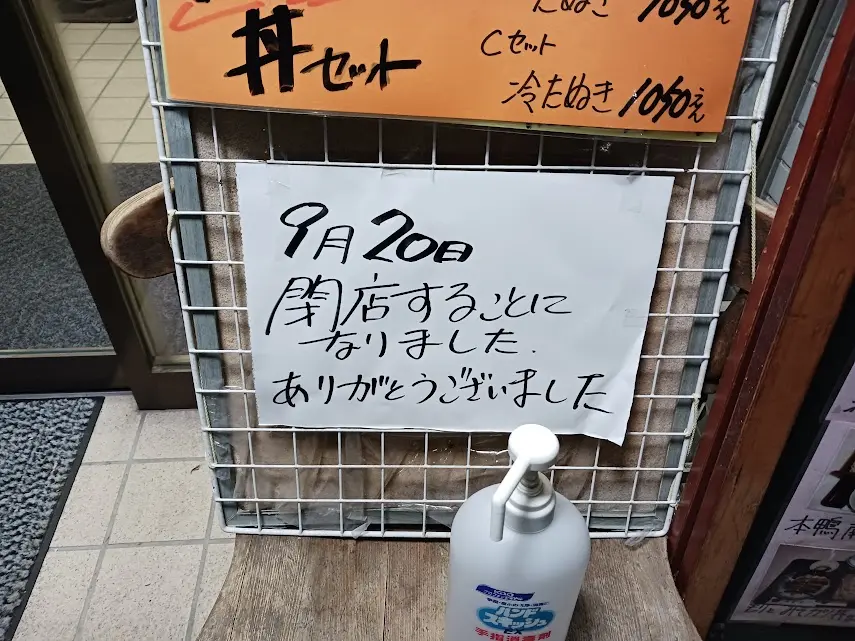 丼セット
たぬき 1050えん
Cセット
冷たぬき 1050えん
9月20日
閉店することに
なりました.
ありがとうございました
ハンド
スキッシュ
手指消毒剤
本鴨南